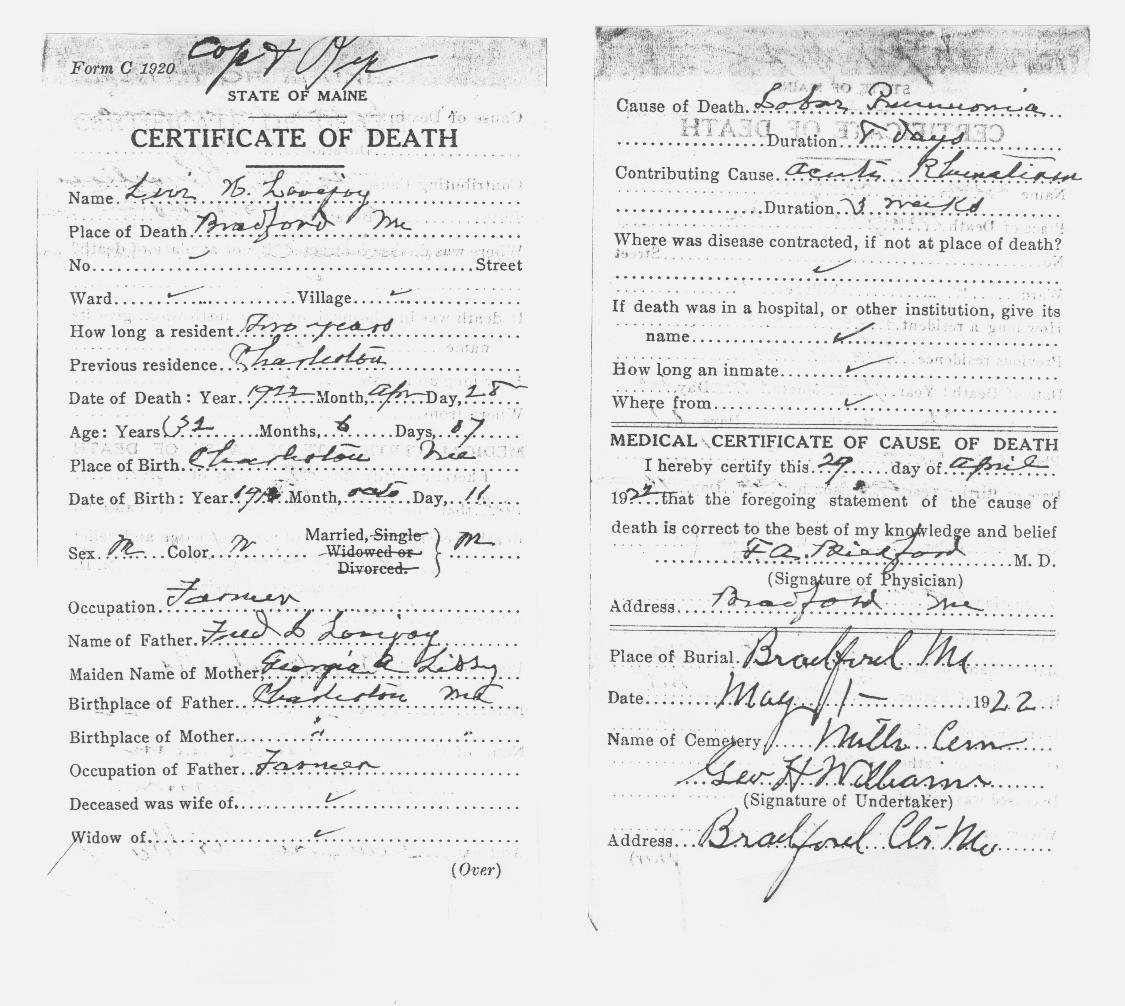 Form C 1920
STATE OF MAINE
CERTIFICATE OF DEATH
Name. H. Lovejoy
Place of Death. Bradford Me
No. ✓ Street
Ward ✓ Village ✓
How long a resident. Two years
Previous residence. Charleston
Date of Death: Year. 1922 Month, Apr Day, 28
Age: Years 32 Months, 6 Days, 17
Place of Birth. Charleston Me
Date of Birth: Year Month, Oct Day, 11
Sex. M Color. W Married, Single Widowed or Divorced. } M
Occupation. Farmer
Name of Father. Fred L Lovejoy
Maiden Name of Mother, Georgia A Libby
Birthplace of Father. Charleston Me
Birthplace of Mother. " "
Occupation of Father. Farmer
Deceased was wife of. ✓
Widow of. ✓
(Over)
Cause of Death. Lobar Pneumonia
Duration. 8 days
Contributing Cause. acute Rheumatism
Duration. 3 weeks
Where was disease contracted, if not at place of death?
✓
If death was in a hospital, or other institution, give its
name ✓
How long an inmate ✓
Where from ✓
MEDICAL CERTIFICATE OF CAUSE OF DEATH
I hereby certify this 29 day of April
1922 that the foregoing statement of the cause of
death is correct to the best of my knowledge and belief
F. A. M. D.
(Signature of Physician)
Address Bradford Me
Place of Burial. Bradford Me
Date May 1 - 1922
Name of Cemetery Mills Cem
Geo H Williams
(Signature of Undertaker)
Address Bradford Me